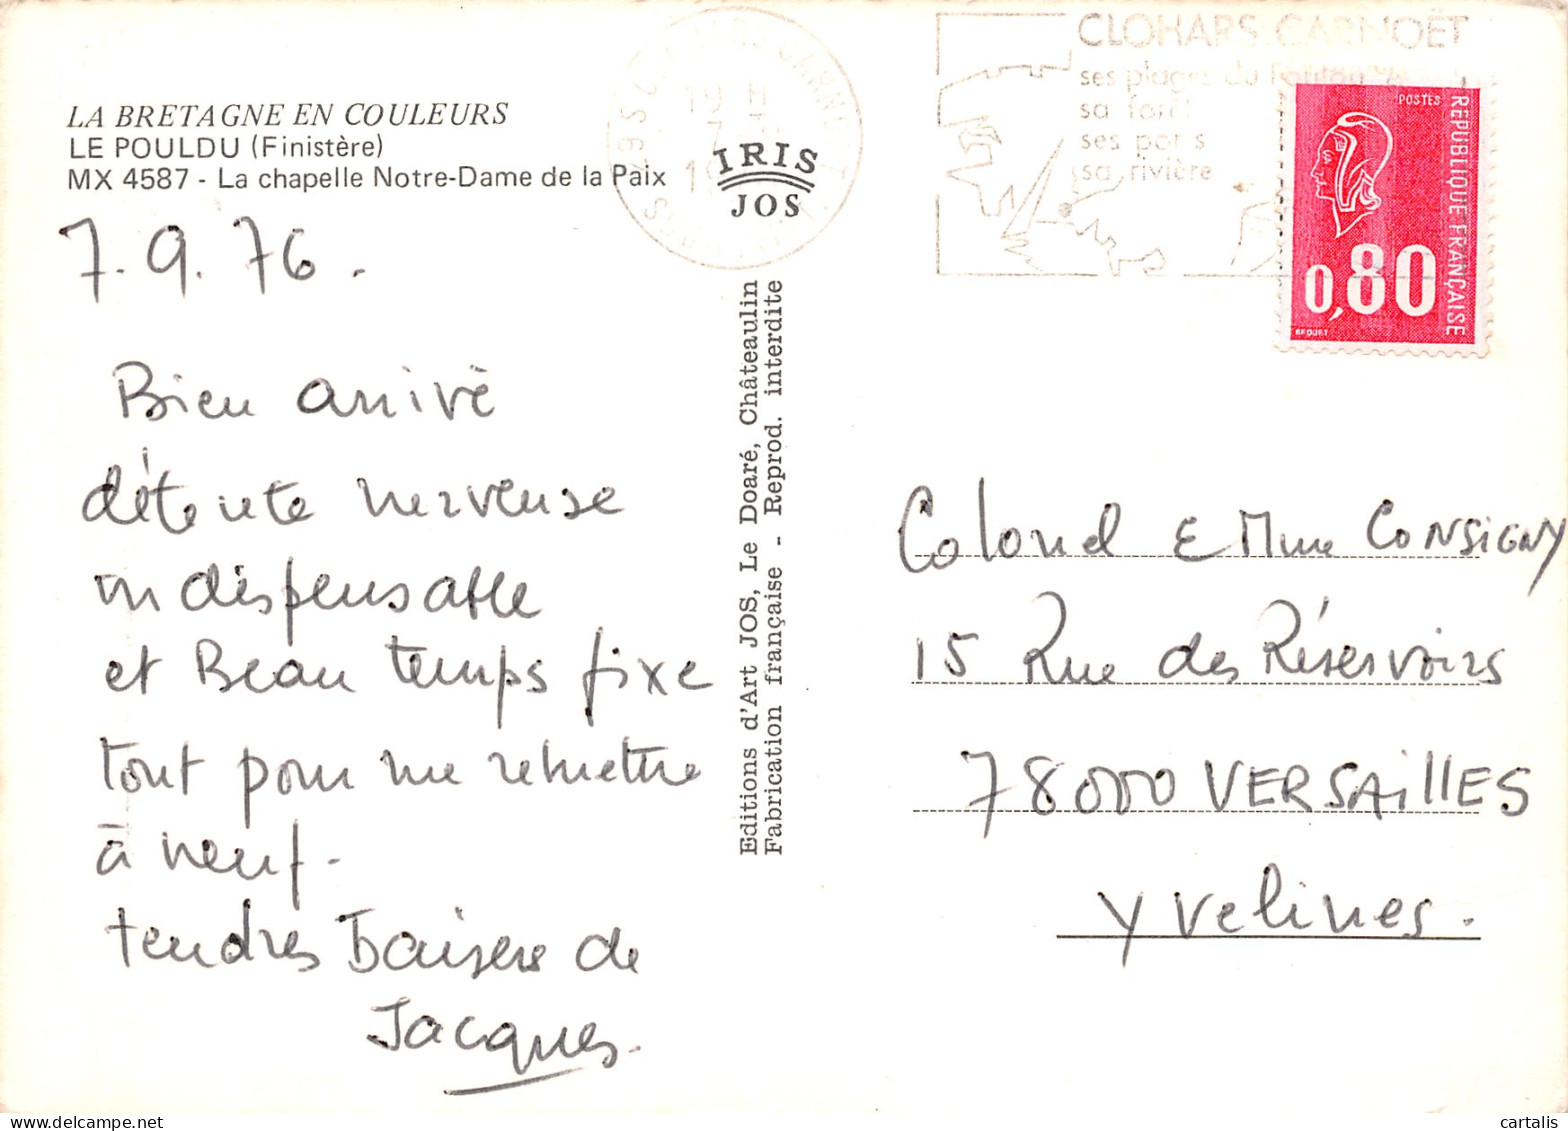 LA BRETAGNE EN COULEURS
LE POULDU (Finistère)
MX 4587 - La chapelle Notre-Dame de la Paix
IRIS
JOS
7.9.76.
Bien arrivé
détente nerveuse
indispensable
et Beau temps fixe
tout pour me remettre
à neuf-
tendres Baisers de
Jacques.
Editions d'Art JOS, Le Doaré, Châteaulin
Fabrication française - Reprod. interdite
CLOHARS CARNOËT
ses plages du
sa forêt
ses ports
sa rivière
POSTES
REPUBLIQUE FRANÇAISE
0,80
BEQUET
Colonel & Mme CONSIGNY
15 Rue des Réservoirs
78000 VERSAILLES
Yvelines.
cartalis